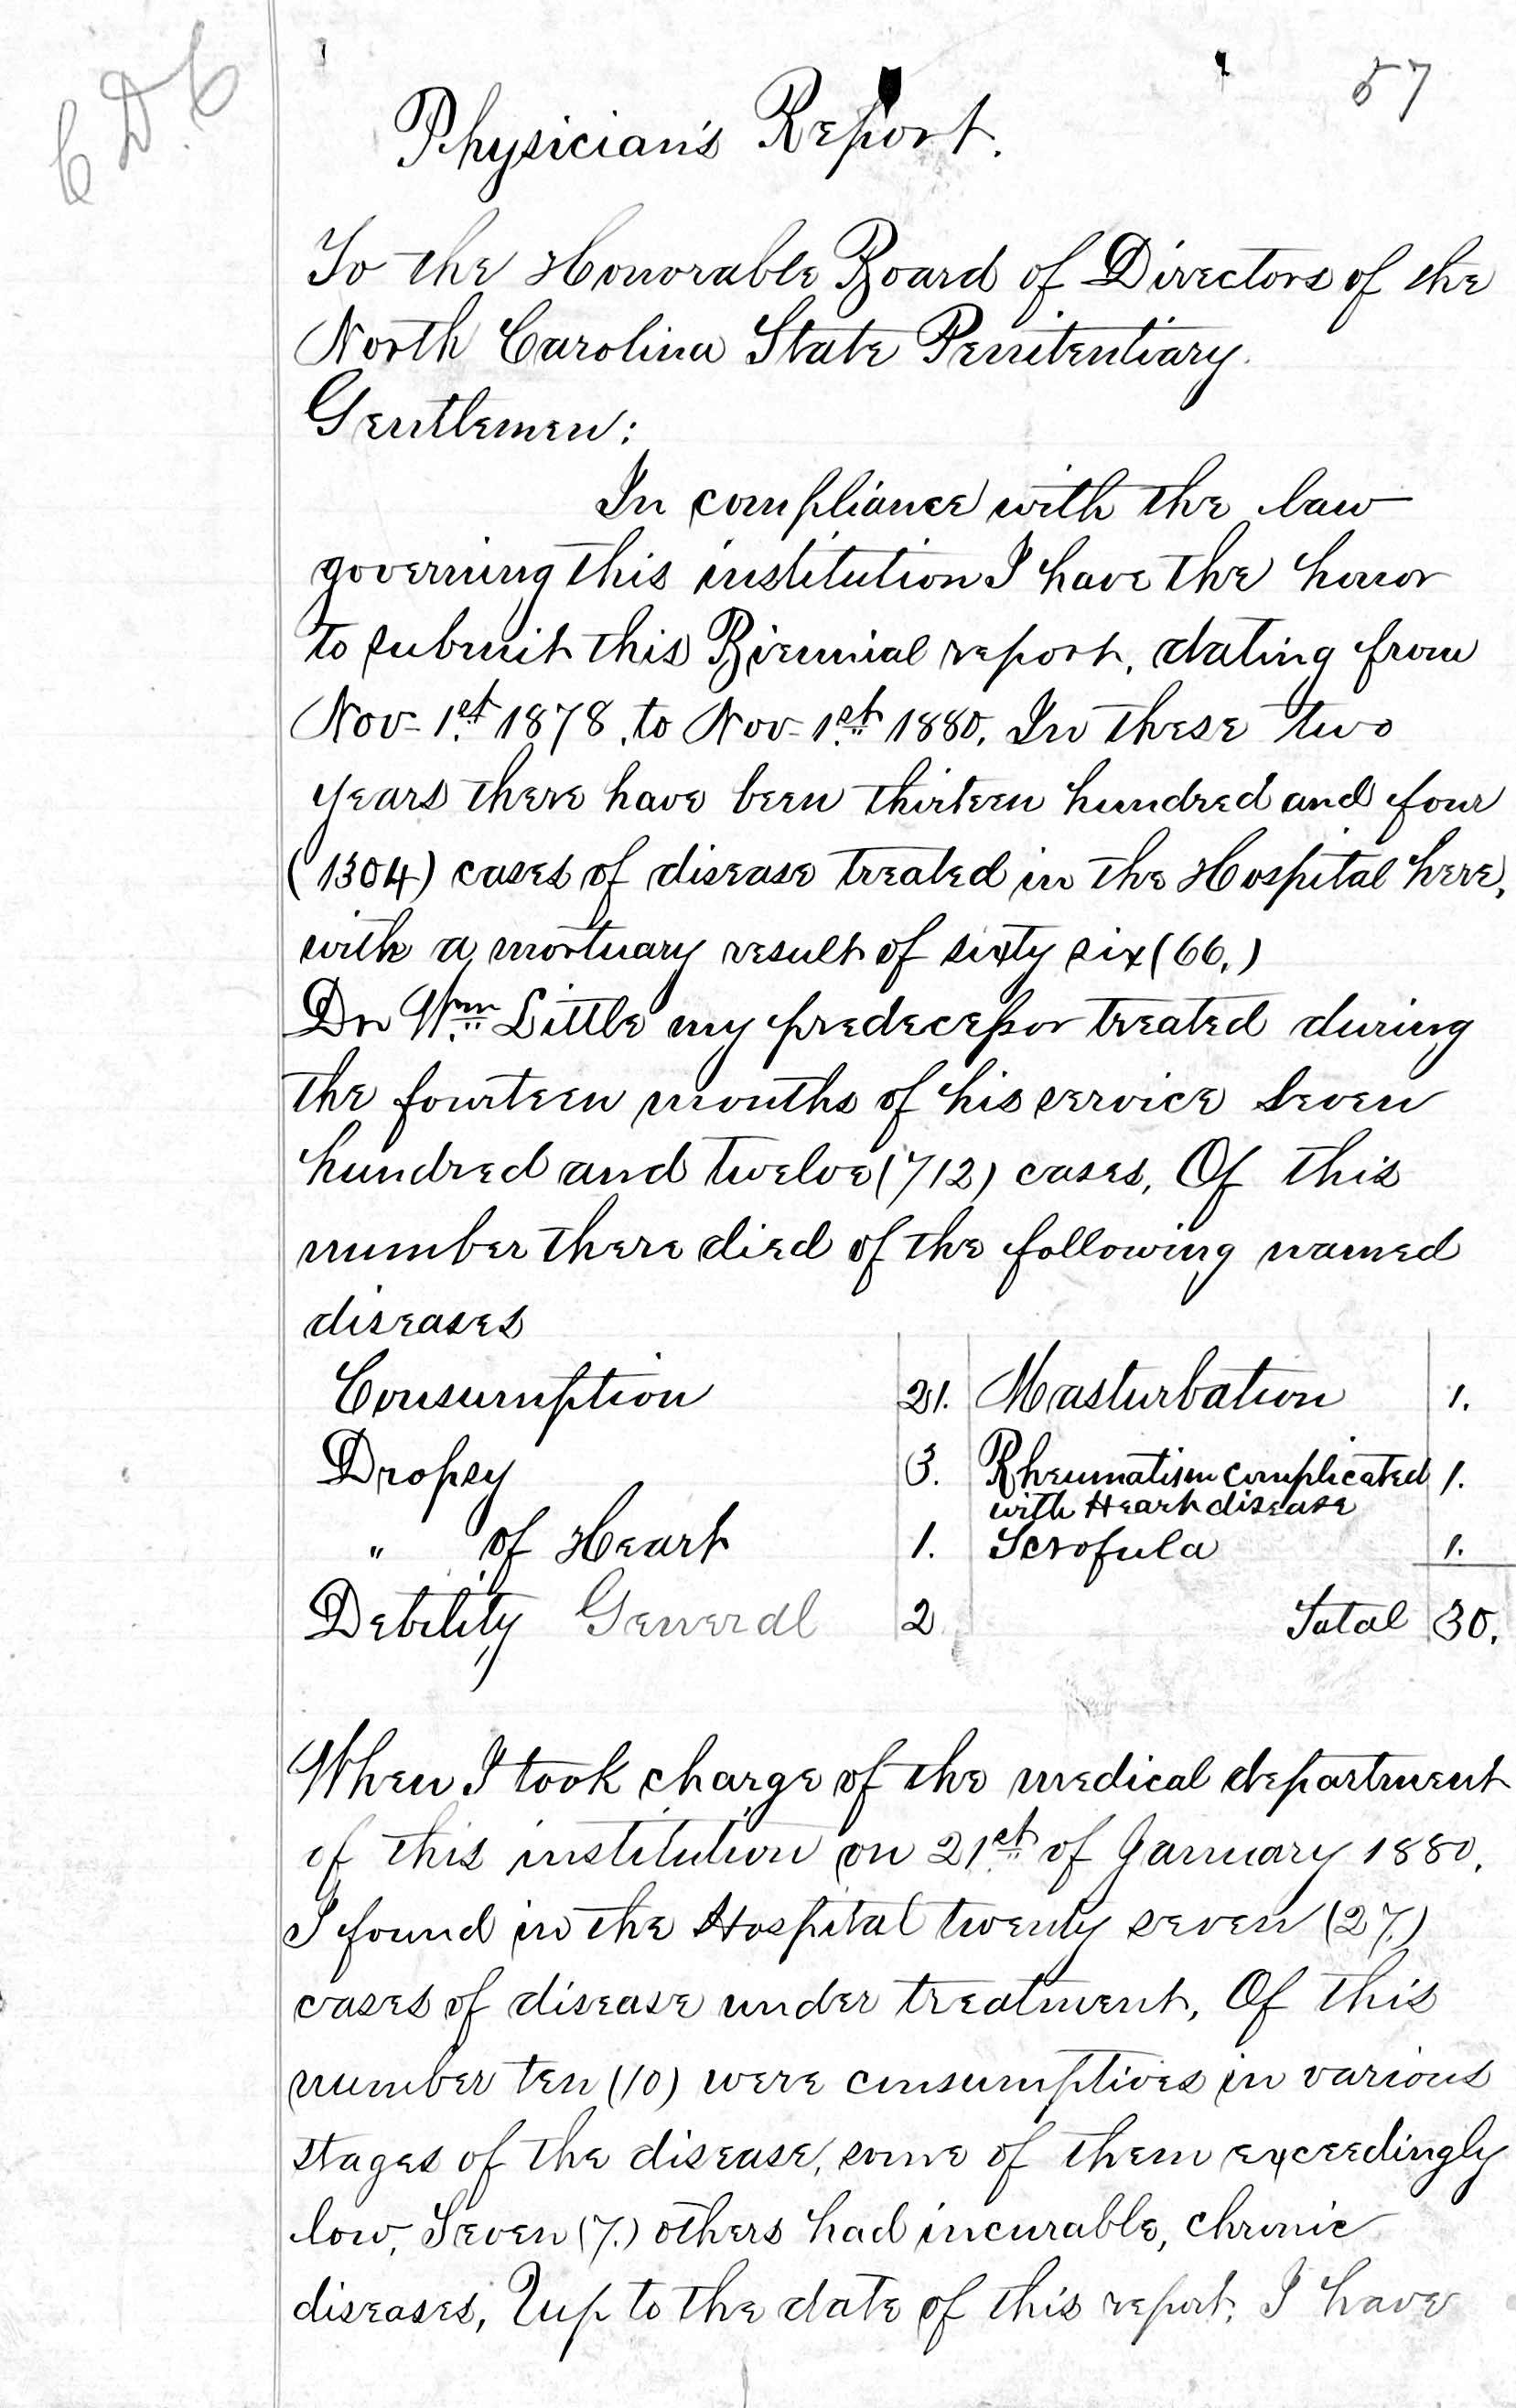 C D. C
57
Physician's Report.
To the Honorable Board of Directors of the
North Carolina State Penitentiary.
Gentlemen:
In compliance with the law
governing this institution I have the honor
to submit this Biennial report, dating from
Nov- 1st 1878, to Nov- 1st 1880. In these two
years there have been thirteen hundred and four
(1304) cases of disease treated in the Hospital here,
with a mortuary result of sixty six (66.)
Dr Wm Little my predecessor treated during
the fourteen months of his service seven
hundred and twelve (712) cases, Of this
number there died of the following named
diseases
Consumption 21. Masturbation 1.
Dropsy 3. Rheumatism complicated 1.
with Heart disease
" of Heart 1. Scrofula 1.
Debility General 2 Total 30.
When I took charge of the medical department
of this institution on 21st of January 1880.
I found in the Hospital twenty seven (27.)
cases of disease under treatment, Of this
number ten (10) were consumptives in various
stages of the disease, some of them exceedingly
low, Seven (7.) others had incurable, chronic
diseases, Up to the date of this report, I have